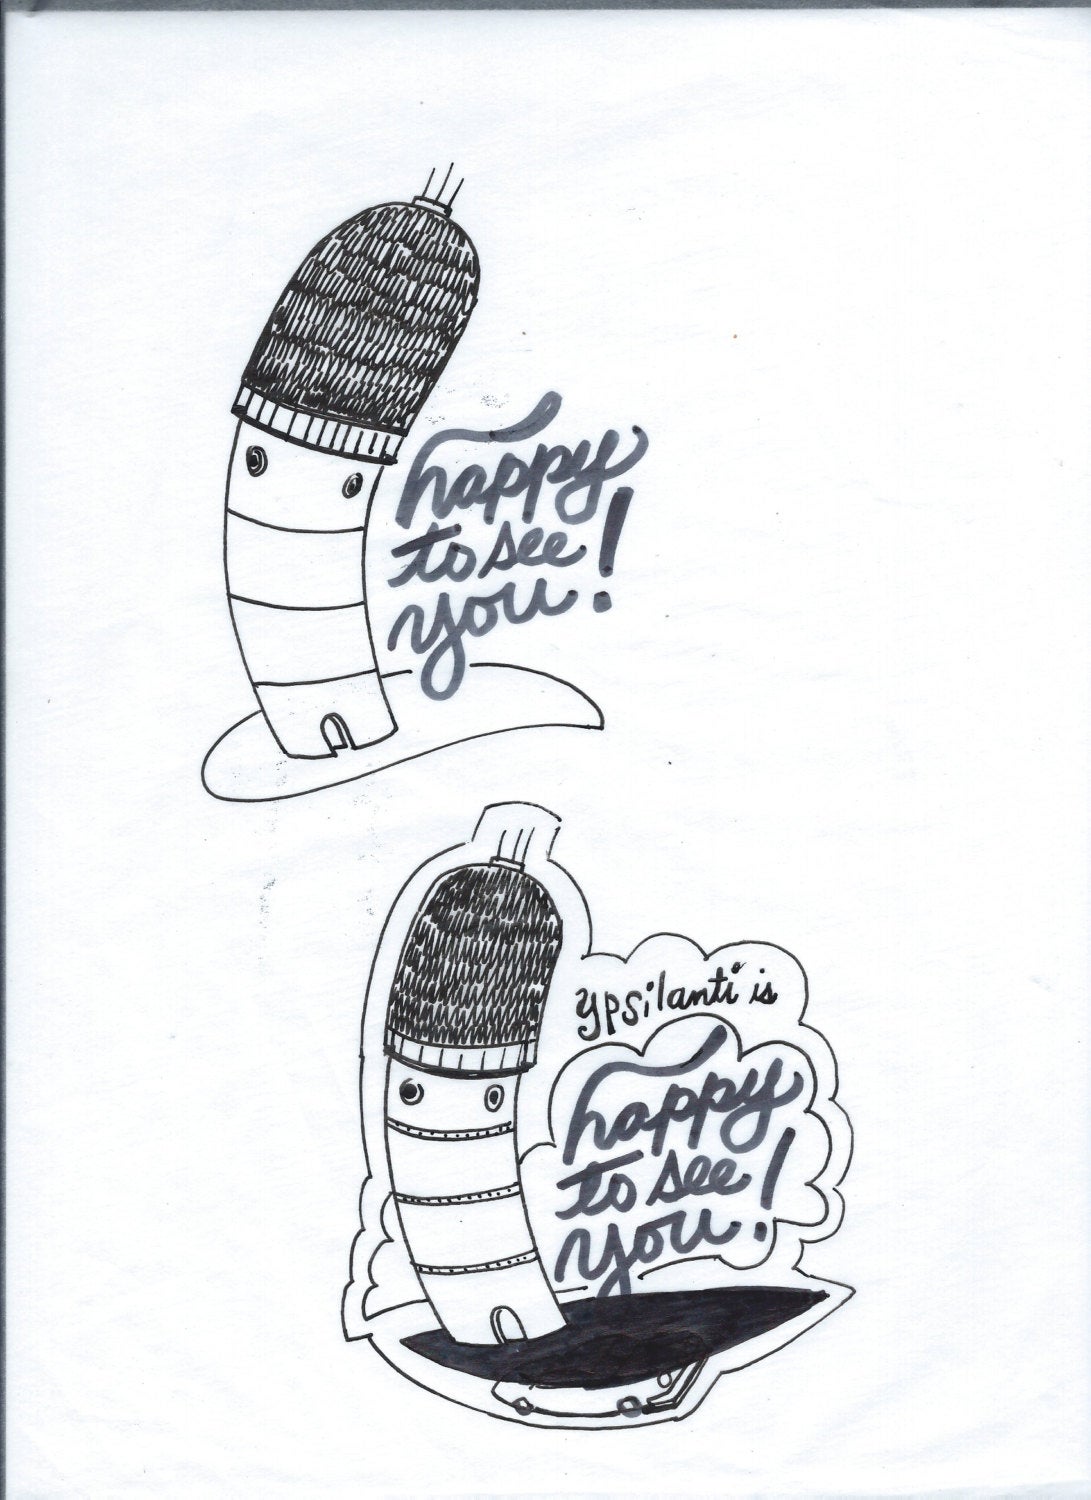 happy
to see
you!
ypsilanti is
happy
to see
you!